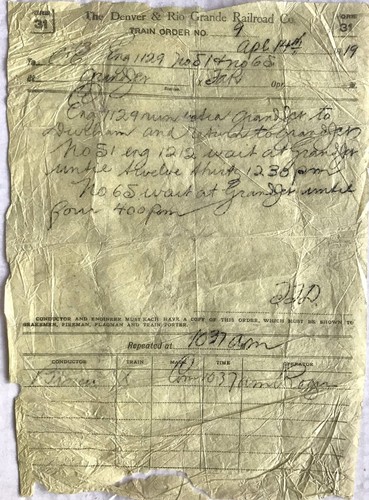 FORM 31
The Denver & Rio Grande Railroad Co.
FORM 31
TRAIN ORDER NO. 9
Apl 14th 19
To C&E Eng 1129 No 51 & No 65
At Opr.
Eng 1129 run extra Grand Jct to
Durham and return to Grand Jct
No 51 eng 1212 wait at Grand Jct
until twelve thirty 1230 pm
No 65 wait at Grand Jct until
four 400 pm
CONDUCTOR AND ENGINEER MUST EACH HAVE A COPY OF THIS ORDER, WHICH MUST BE SHOWN TO
BRAKEMEN, FIREMAN, FLAGMAN AND TRAIN PORTER.
Repeated at 1037 am
CONDUCTOR TRAIN MADE TIME OPERATOR
Com 1037 am